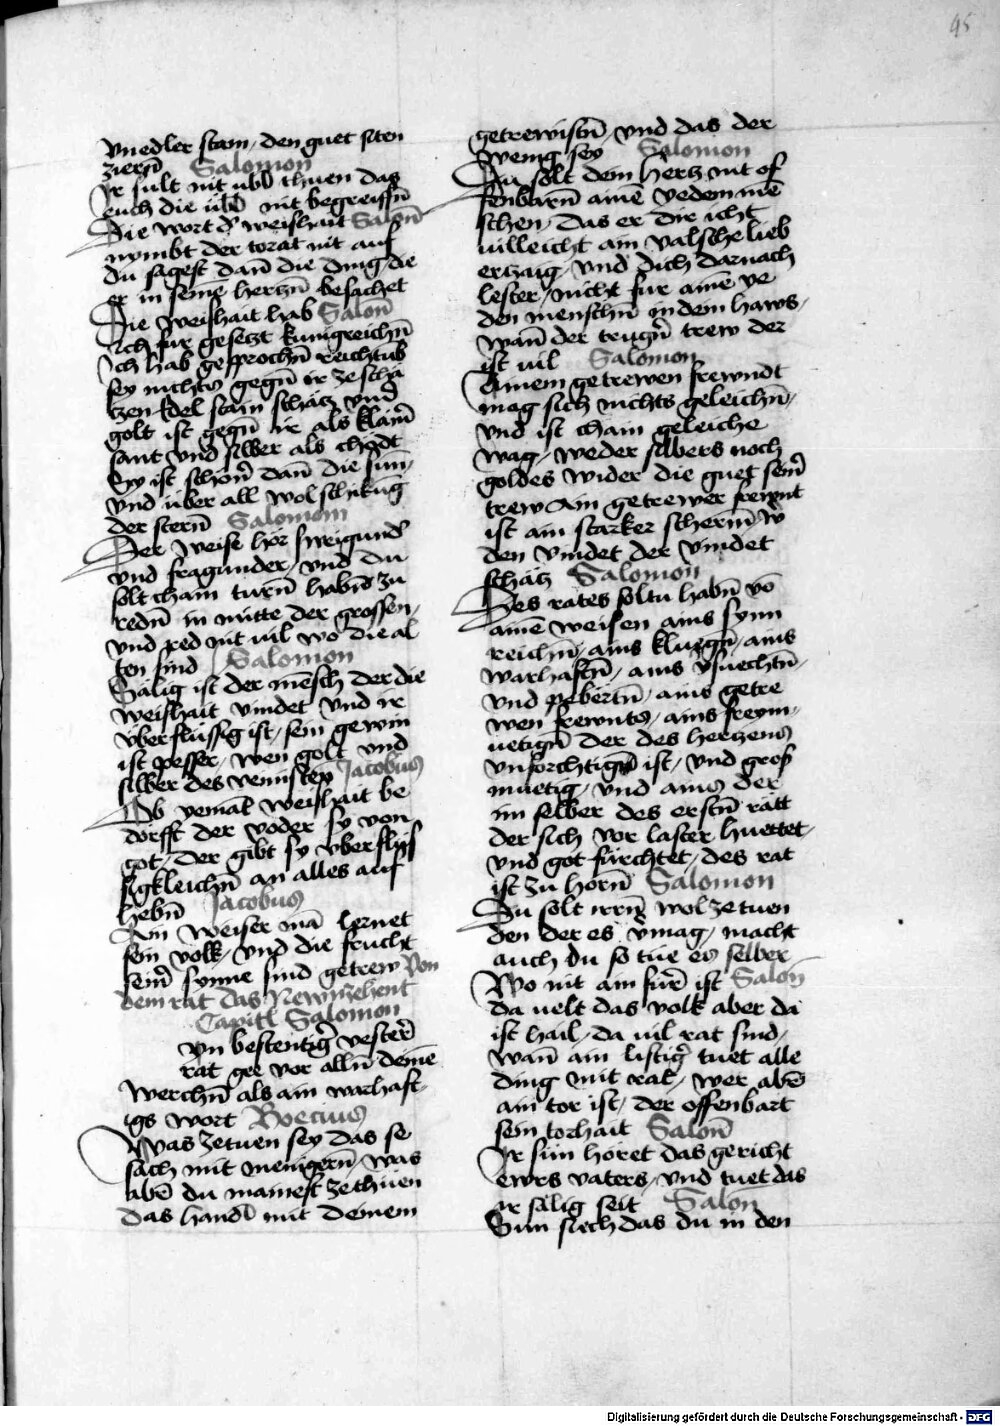 45
vnedler stam, den guet siten
ziern̄ Salomon
Ir sult nit übl thuen das
euch die übl nit begreiffn̄
Die wort d' weishait Salon̄
nymbt der torat nit auf
du sagest dan̄ die ding, die
er in seinē hertzn̄ besachet
Die weishait hab Salon̄
Ich für gesetzt kunigreichn̄
Ich hab gesprochn̄ reichtūb
sey nichts gegn̄ ir zeschā
tzen Edel stain schätz vnd
golt ist gegn̄ ir als klainr̄
sant vnd silber als chodt
Sy ist schönr̄ dan̄ die sun̄,
vnd über all wol schikūg
der stern̄ Salomom
Der weise hör sweigund'
vnd fragunder, vnd du
solt chain turn̄ habn̄ zu
redn̄ in mitte der grossen,
vnd red nit uil wo die al
ten sind Salomon
Sälig ist der mēsch der die
weishait vindet vnd ir
überflüssig ist, sein gewin
ist pesser, wen golt vnd
silber des vemisten Jacobus
Ob yemāt weishait be
dörfft der voder sy von
got, der gibt sy überflüs
sigkleichn̄ an alles auf
hebn̄ Jacobus
Ain weiser mā lernet
sein volk, vnd die frucht
seinr̄ synne sind getrew Von
dem rat das Newnzehent
Capitl Salomon
yn bestentigr̄ vesterr̄
rat gee vor alln̄ deinē
werchn̄ als ain warhaft,
igs wort Boecius
Was zetuen sey das be
sach mit menigern̄, was
abē du mainest zethuen
das handl mit deinem
getrewistn̄, vnd das der
wenig sey Salomon
Du solt dein hertz nit of
fenbarn̄ ainē yedem mē
schen, das er dir icht
uilleicht ain valsche lieb
ertzaig, vnd dich darnach
lester, nicht für ainē ye
den menschn̄ in dem haws,
wan̄ der trugn̄ trew der
ist uil Salomon
Ainem getrewen frewndt
mag sich nichts geleichn̄,
vnd ist chain geleiche
wag, weder silbers noch
goldes wider die guet seinr̄
trew Ain getrewer frewnt
ist ain starker scherm w'
den vindet der vindet
schätz Salomon
Des rates soltu habn̄ vō
ainē weisen ains synn
reichn̄, ains kluegn̄, ains
warhaftn̄, ains vsuechtn̄,
vnd pebertn̄, ains getre
wen frewnts, ains freym,
uetign̄ der des hertzens
vnforchtigs ist, vnd gros
muetig, vnd ains der
im selber des erstn̄ rätt
der sich vor laster huettet,
vnd got fürchtet, des rat
ist zu hörn̄ Salomon
Du solt irrn̄ wol zetuen
den der es vmag, macht
auch du so tue es selber
Wo nit ain fürer ist Salon
da uelt das volk aber da
ist hail, da uil rat sind,
wan̄ ain listigr̄ tuet alle
ding mit rat, wer abē
ain tor ist, der offenbart
sein torhait Salon̄
Ir sün höret das gericht
ewrs vaters, vnd tuet das
ir sälig seit Salon
Sun siech das du in den
Digitalisierung gefördert durch die Deutsche Forschungsgemeinschaft - DFG